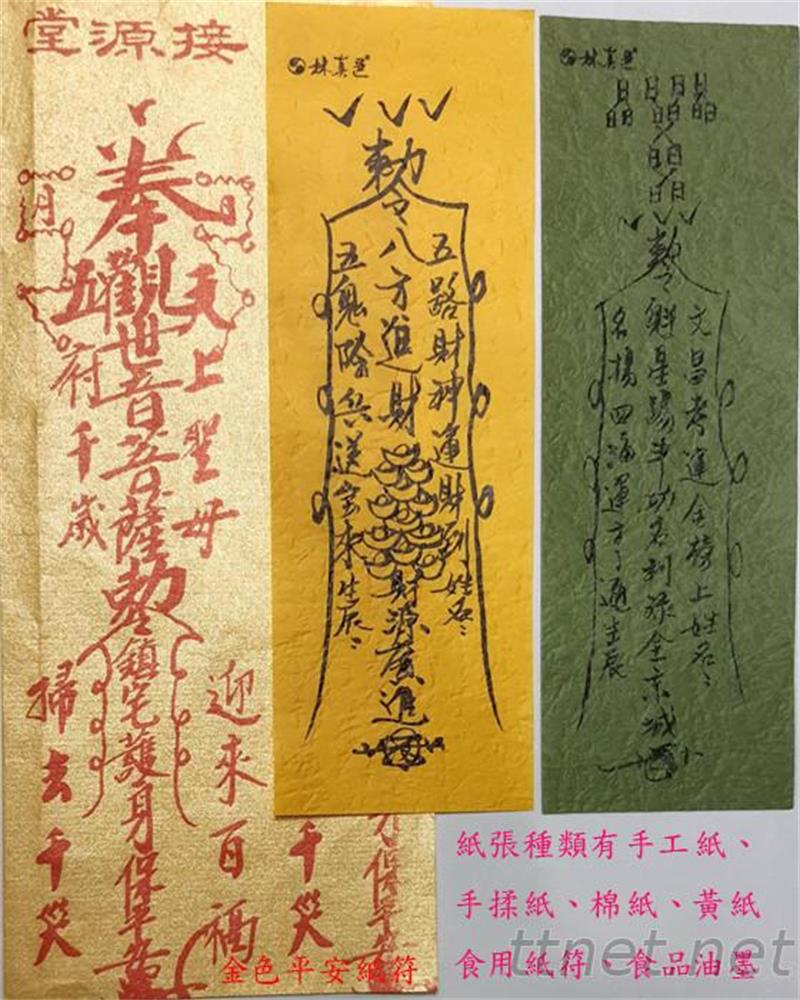 接源堂
奉
月
日
天上聖母
觀世音菩薩
五府千歲
勅
鎮宅護身保平安
迎來百福
掃去千災
千災
身保平安
林真邑
勅令八方進財
財源廣進
五路財神運財到姓名
五鬼陰兵送宝來生辰
林真邑
勅令魁星踢斗功名利祿全京城
文昌考運金榜上姓名
名揚四海運方方通生辰
紙張種類有手工紙、
手揉紙、棉紙、黃紙
食用紙符、食品油墨
金色平安紙符
ttnet.net